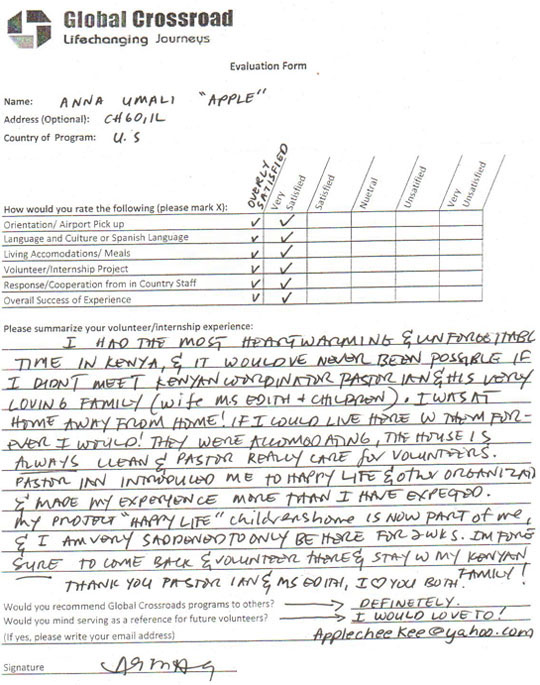 Global Crossroad
Lifechanging Journeys
Evaluation Form
Name: ANNA UMALI "APPLE"
Address (Optional): CHGO, IL
Country of Program: U.S
How would you rate the following (please mark X): OVERLY SATISFIED Very Satisfied Satisfied Nuetral Unsatified Very Unsatisfied
Orientation/ Airport Pick up ✓ ✓
Language and Culture or Spanish Language ✓ ✓
Living Accomodations/ Meals ✓ ✓
Volunteer/Internship Project ✓ ✓
Response/Cooperation from in Country Staff ✓ ✓
Overall Success of Experience ✓ ✓
Please summarize your volunteer/internship experience:
I HAD THE MOST HEARTWARMING & UNFORGETTABLE
TIME IN KENYA, & IT WOULDVE NEVER BEEN POSSIBLE IF
I DIDNT MEET KENYAN COORDINATOR PASTOR IAN & HIS VERY
LOVING FAMILY (wife MS EDITH + CHILDREN). I WAS AT
HOME AWAY FROM HOME! IF I COULD LIVE HERE W THEM FOR-
EVER I WOULD! THEY WERE ACCOMODATING, THE HOUSE IS
ALWAYS CLEAN & PASTOR REALLY CARE for VOLUNTEERS.
PASTOR IAN INTRODUCED ME TO HAPPY LIFE & other ORGANIZATI
& MADE MY EXPERIENCE MORE THAN I HAVE EXPECTED.
MY PROJECT "HAPPY LIFE" childrenshome IS NOW PART OF me,
& I AM VERY SADDENED TO ONLY BE HERE FOR 2WKS. IM FORE
SURE TO COME BACK & VOLUNTEER THERE & STAY W MY KENYAN
FAMILY!
THANK YOU PASTOR IAN & MS EDITH, I ♡ YOU BOTH!
Would you recommend Global Crossroads programs to others? → DEFINETELY.
Would you mind serving as a reference for future volunteers? → I WOULD LOVE TO!
(If yes, please write your email address) Applecheekee@yahoo.com
Signature